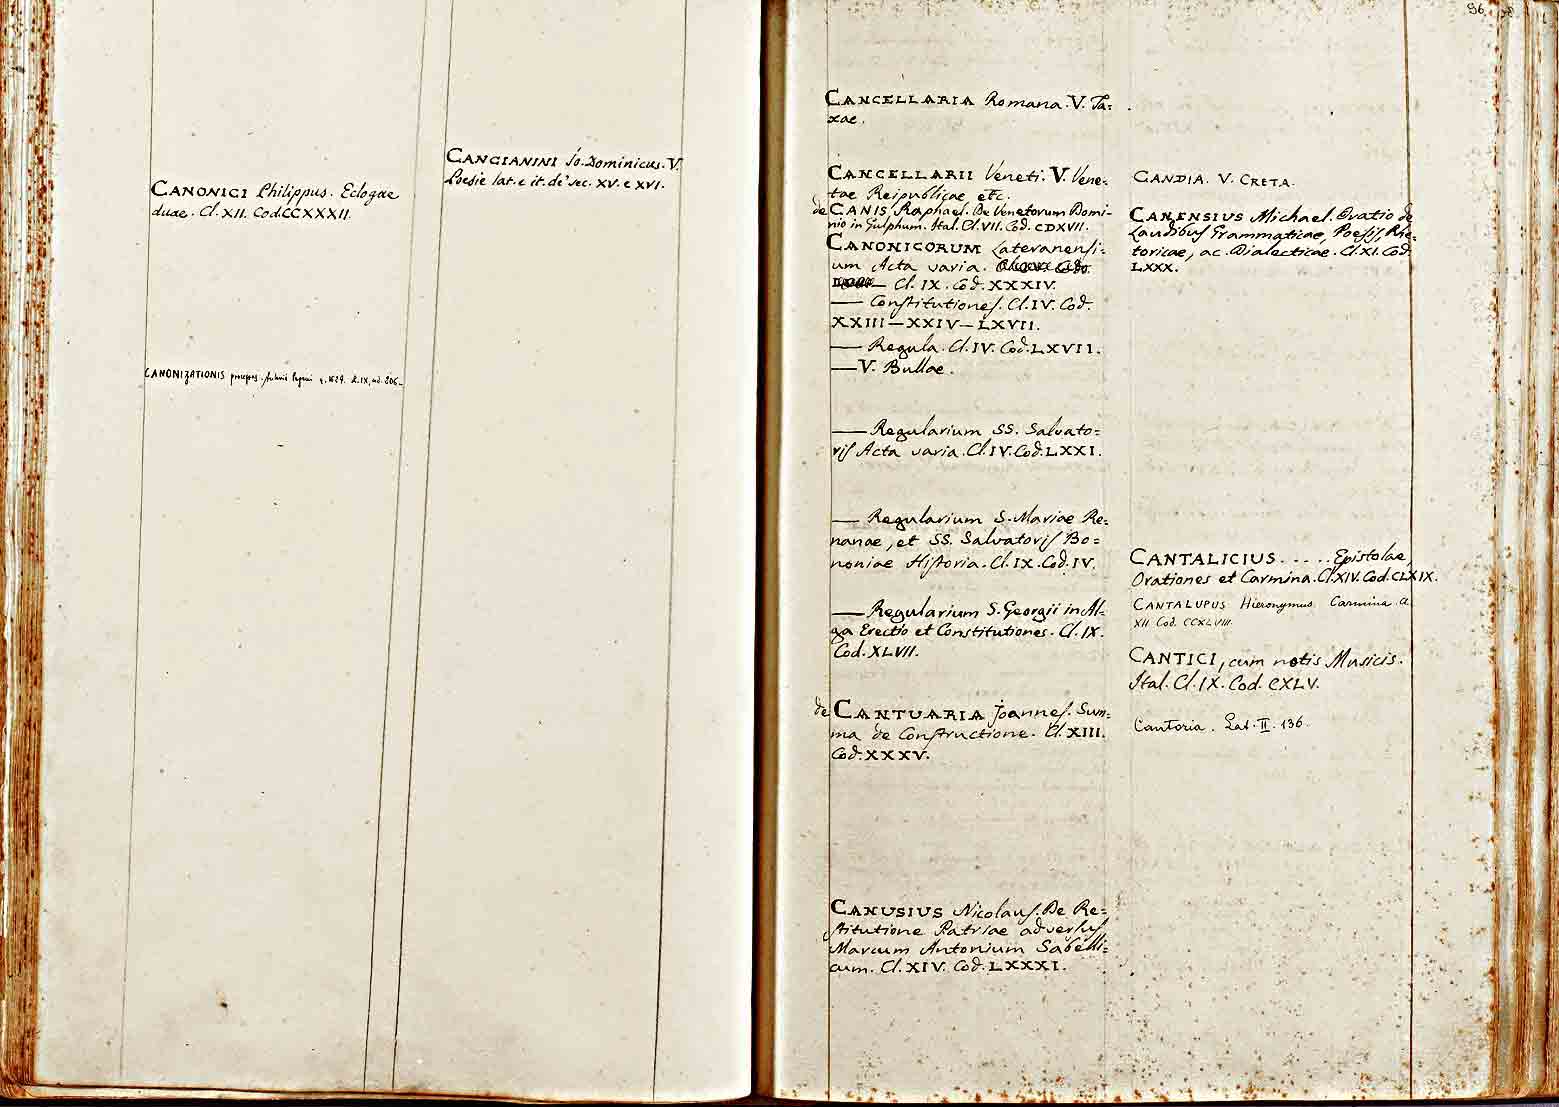 CANONICI Philippus. Eclogae
duae. Cl. XII. Cod. CCXXXII.
CANONIZATIONIS
CANGIANINI Jo. Dominicus. V.
Poesie lat. e it. de' sec. XV. e XVI.
96
CANCELLARIA Romana. V. Ta=
xae.
CANCELLARII Veneti. V. Vene=
tae Reipublicae etc.
de CANIS, Raphael. De Venetorum Domi-
nio in Gulphum. Ital. Cl. VII. Cod. CDXVII.
CANONICORUM Lateranensi-
um Acta varia.
Cl. IX. Cod. XXXIV.
— Constitutiones. Cl. IV. Cod.
XXIII — XXIV — LXVII.
— Regula. Cl. IV. Cod. LXVII.
— V. Bullae.
— Regularium SS. Salvato=
ris Acta varia. Cl. IV. Cod. LXXI.
— Regularium S. Mariae Re=
nanae, et SS. Salvatoris Bo=
noniae Historia. Cl. IX. Cod. IV.
— Regularium S. Georgii in Al-
ga Erectio et Constitutiones. Cl. IX.
Cod. XLVII.
de CANTUARIA Joannes. Sum=
ma de Constructione. Cl. XIII.
Cod. XXXV.
CANUSIUS Nicolaus. De Re=
stitutione Patriae adversus
Marcum Antonium Sabelli=
cum. Cl. XIV. Cod. LXXXI.
CANDIA. V. CRETA.
CANENSIUS Michael. Oratio de
Laudibus Grammaticae, Poesis, Rhe=
toricae, ac Dialecticae. Cl. XI. Cod.
LXXX.
CANTALICIUS ..... Epistolae,
Orationes et Carmina. Cl. XIV. Cod. CLXIX.
CANTALUPUS Hieronymus Carmina. Cl.
XII Cod. CCXLVIII.
CANTICI, cum notis Musicis.
Ital. Cl. IX. Cod. CXLV.
Cantoria. Lat. II. 136.